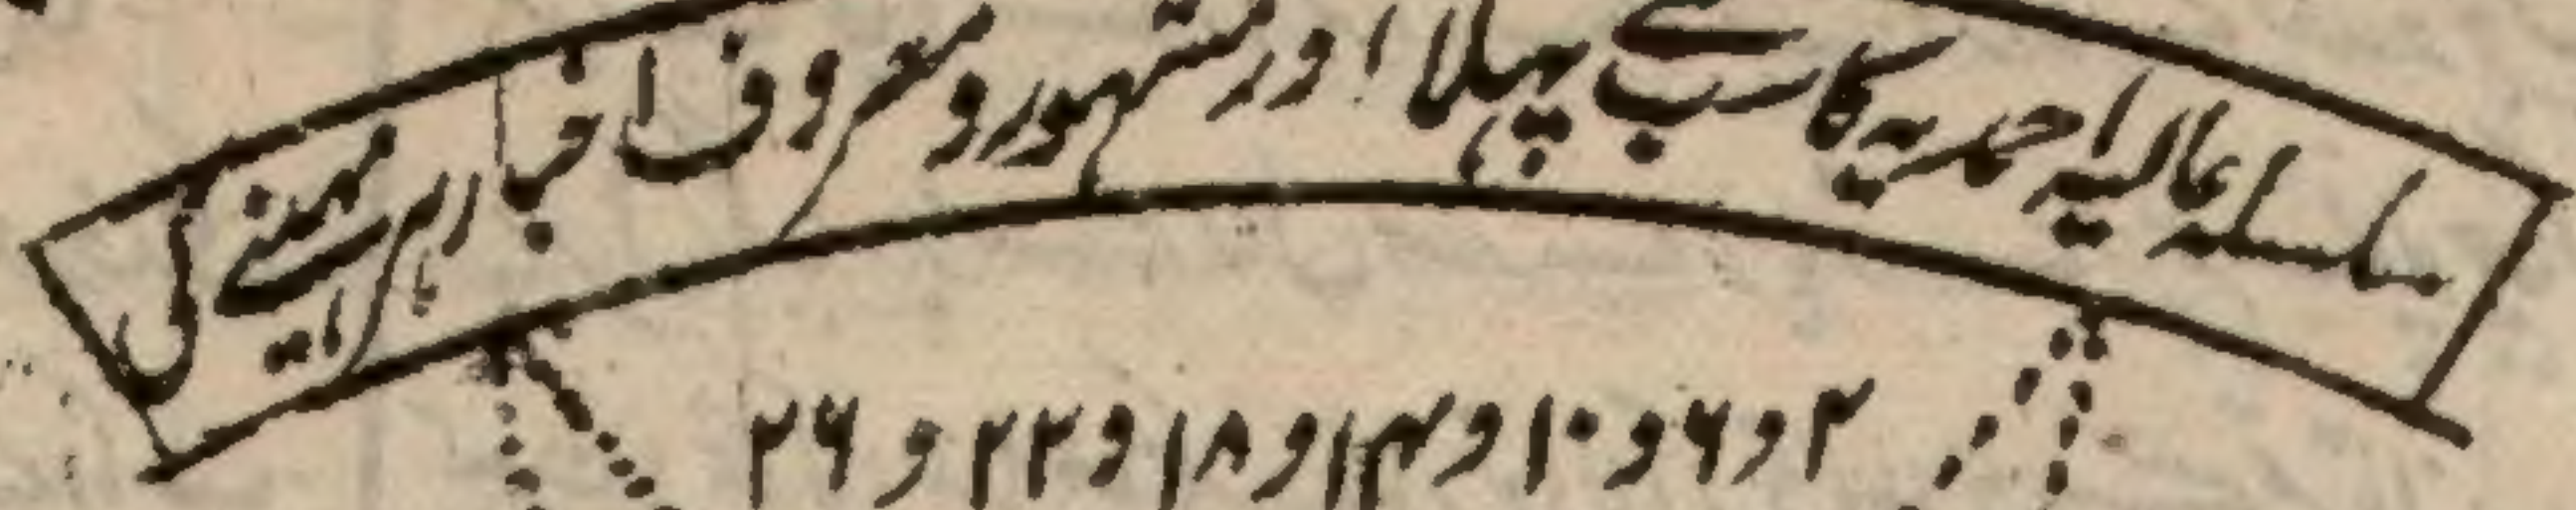 سلسلہ عالیہ احمدیہ کا سب سے پہلا اور مشہور و معروف اخبار ہر مہینے کی
۲ و ۶ و ۱۰ و ۱۴ و ۱۸ و ۲۲ و ۲۶